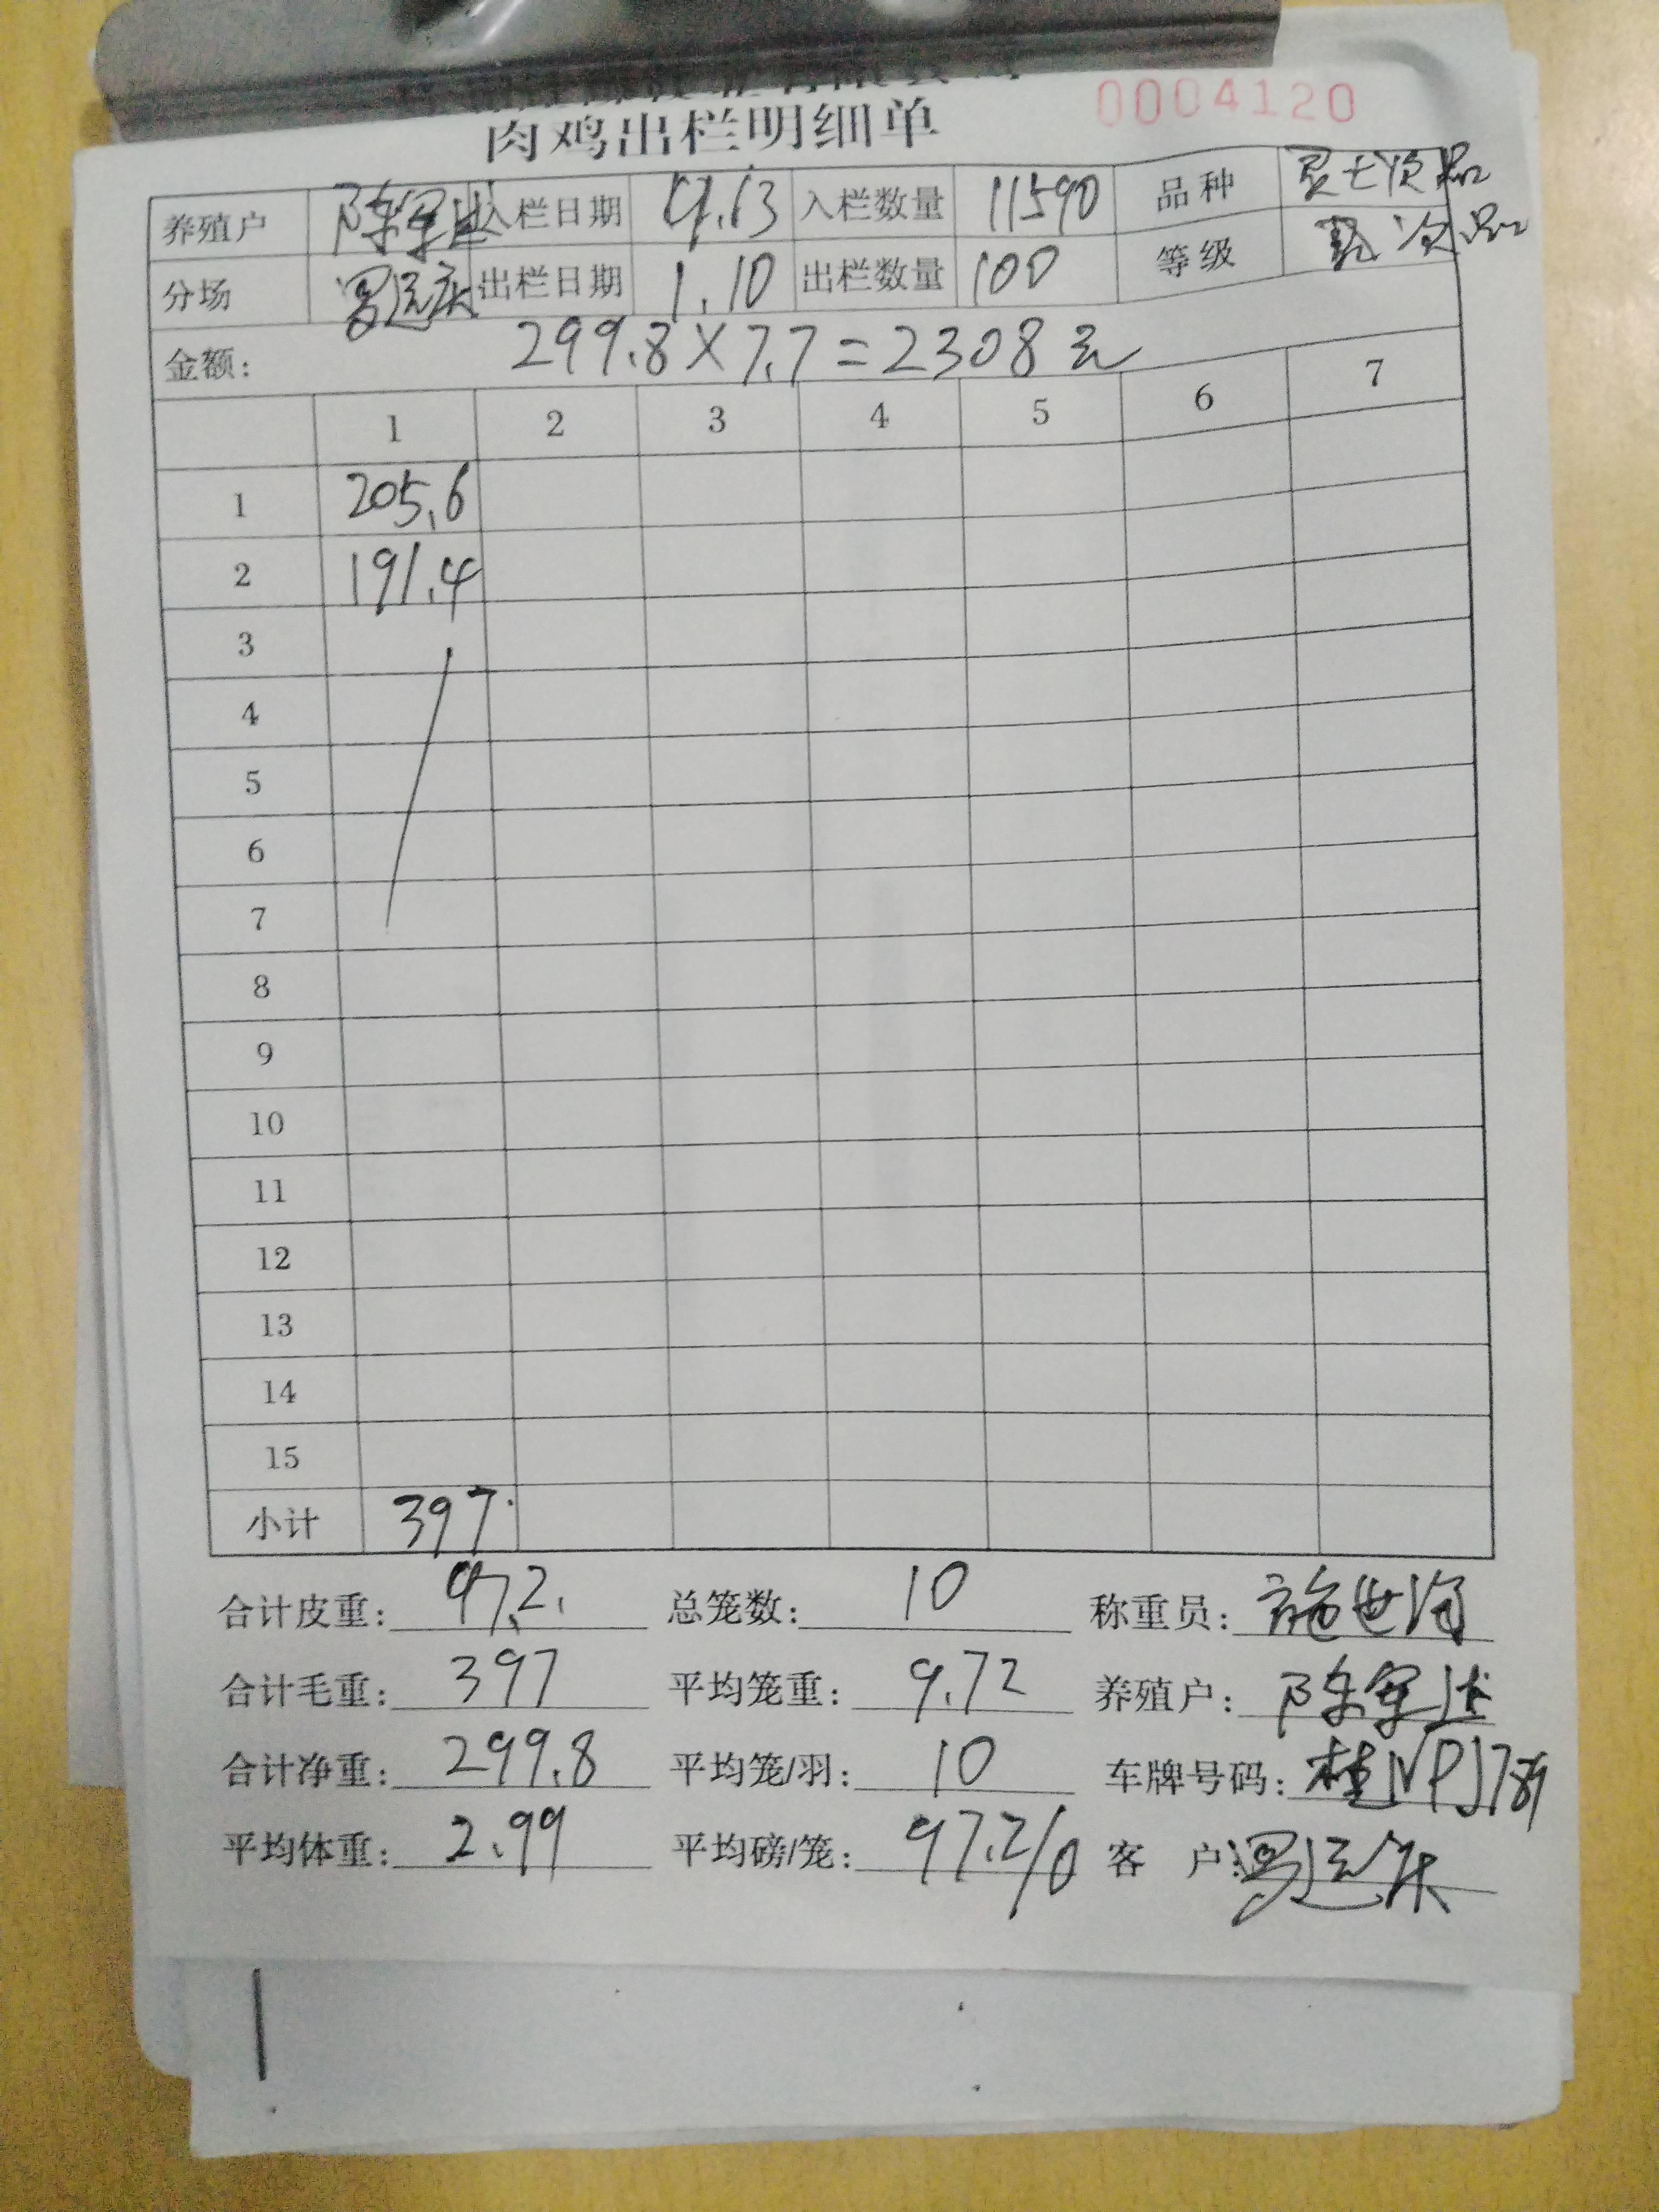 0004120
肉鸡出栏明细单
养殖户 陈军述 入栏日期 9.13 入栏数量 11590 品种 次品
分场 罗运庆 出栏日期 1.10 出栏数量 100 等级 次品
金额: 299.8×7.7=2308元
1 2 3 4 5 6 7
1 205.6
2 191.4
3
4
5
6
7
8
9
10
11
12
13
14
15
小计 397
合计皮重: 97.2 总笼数: 10 称重员: 施世海
合计毛重: 397 平均笼重: 9.72 养殖户: 陈军述
合计净重: 299.8 平均笼/羽: 10 车牌号码:
平均体重: 2.99 平均磅/笼: 97.2/0 客 户: 罗运庆